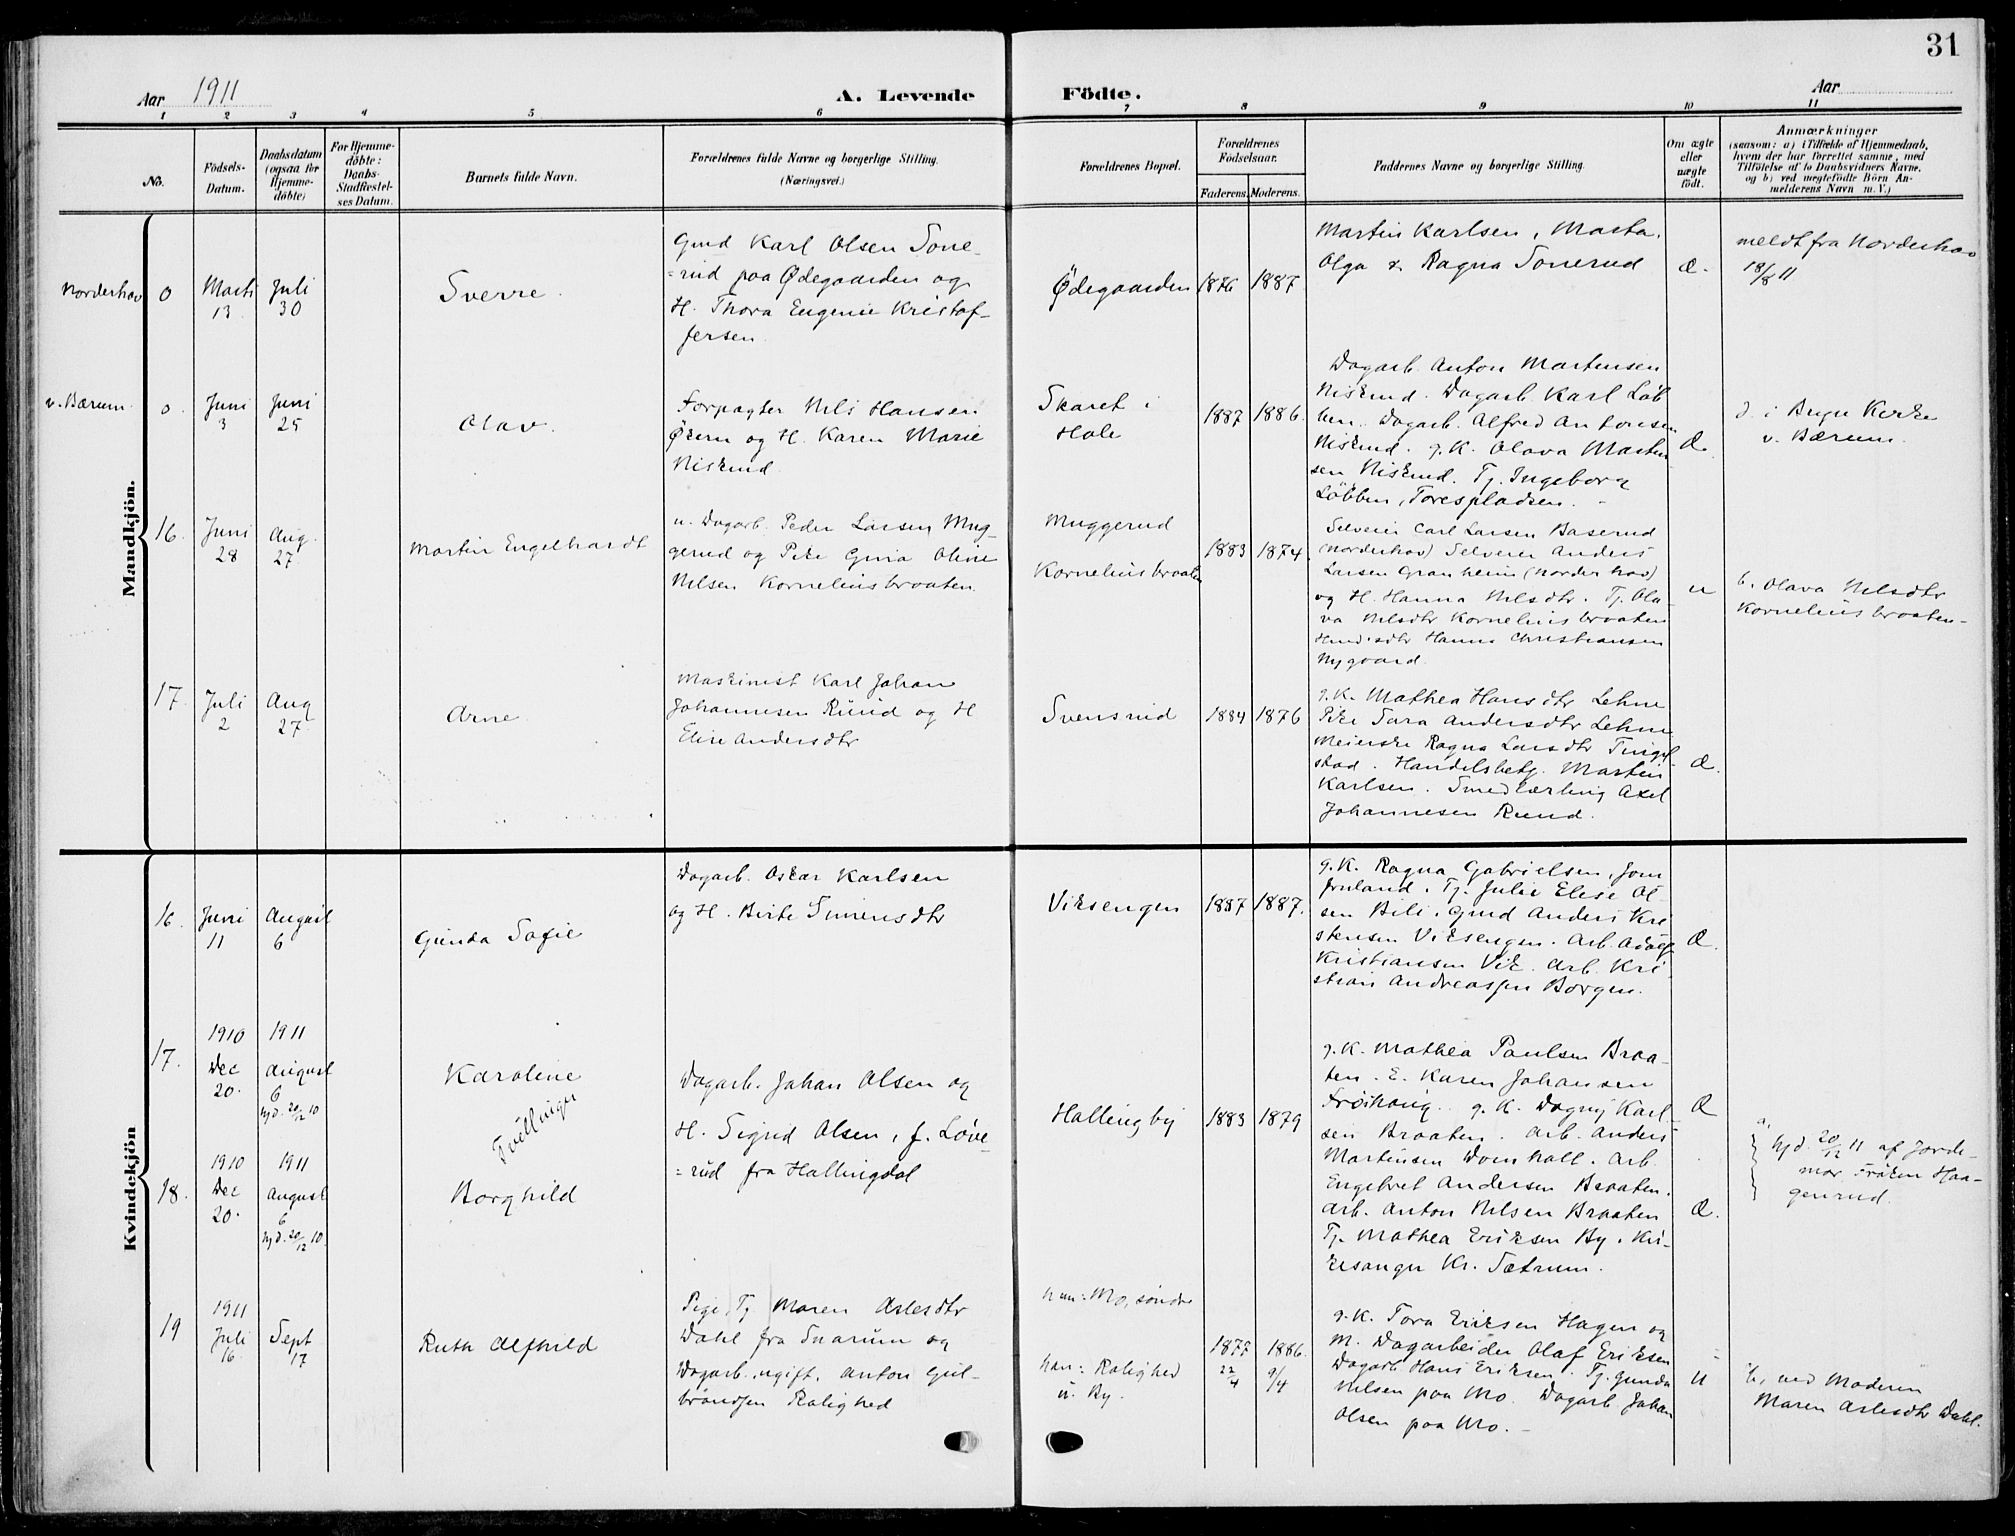 31
Aar 1911
A. Levende Födte.
Aar
1 2 3 4 5 6 7 8 9 10 11
No.
Födsels-
Datum.
Daabsdatum
(ogsaa for
Hjemme-
döbte)
For Hjemme-
döbte:
Daabs-
Stadfæstel-
ses Datum.
Barnets fulde Navn.
Forældrenes fulde Navne og borgerlige Stilling.
(Næringsvei.)
Forældrenes Bopæl.
Forældrenes
Födselsaar.
Faderens. Moderens.
Faddernes Navne og borgerlige Stilling.
Om ægte
eller
uægte
født.
Anmærkninger
(saasom: a) i Tilfælde af Hjemmedaab,
hvem der har forrettet samme, med
Tilföielse af to Daabsvidners Navne,
og b) ved uægtefödte Börn An-
melderens Navn m. V.)
Mandkjön.
Norderhov
0
Marts
13
Juli
30
Sverre.
Gmd Karl Olsen Sone-
=rud paa Ødegaarden og
H. Thora Eugenie Kristof-
fersen.
Ødegaarden
1876
1887.
Martin Karlsen, Marta.
Olga & Ragna Sonerud
Æ.
meldt fra Norderhov
18/8 11
v. Bærum.
0.
Juni
3
Juni
25
Olav.
Forpagter Nils Hansen
Økern og H. Karen Marie
Niskud.
Skaret i
Hole
1887
1886.
Dagarb. Anton Martinsen
Niskud. Dagarb. Karl Løb-
ben. Dagarb. Alfred Antonsen
Niskud. g. K. Olava Martin-
sen Niskud. Tj. Ingeborg
Løbben, Torespladsen.
Æ.
v. Bærum.
16.
Juni
28
Aug.
27.
Martin Engelhardt
u. Dagarb. Peder Larsen Mug-
gerud og Pike Gina Oline
Nilsen Korneliusbraaten.
Muggerud
Korneliusbraaten
1883
1874.
Selveier Carl Larsen Baserud
(Norderhov) Selveier Anders
Larsen Granheim (Norderhov)
og H. Hanna Nilsdtr. Tj. Ola-
va Nilsdtr Korneliusbraaten
Hanna Christiansen
Nygaard.
u
b. Olava Nilsdtr
Korneliusbraaten.
17.
Juli
2
Aug
27.
Arne.
Maskinist Karl Johan
Johannesen Ruud og H
Elise Andersdtr
Svensrud
1884
1876
g. K. Mathea Hansdtr Lehne
Pike Sara Andersdtr Lehne
Meierske Ragna Larsdtr Tingel-
stad. Handelsbetj. Martin
Karlsen. Smedlærling Axel
Johannesen Ruud.
Æ.
Kvindekjön
16.
Juni
11
August
6
Gunda Sofie
Dagarb. Oskar Karlsen
og H. Birte Simensdtr
Viksengen
1887
1887.
g. K. Ragna Gabrielsen, Jom-
fruland. Tj. Julie Elise Ol-
sen Bili. Gmd Anders Kri-
stensen Viksengen. Arb. Adolf
Kristiansen Vik. Arb. Kri-
stian Andreassen Borgen.
Æ.
17.
1910
Dec
20.
1911
August
6
hjd. 20/12 10
Karoline
Tvillinger
Dagarb. Johan Olsen og
H. Sigrid Olsen, f. Løve-
=rud fra Hallingdal
Hallingby
1883
1879
g. K. Mathea Paulsen Braa-
ten. E. Karen Johansen
Frøihaug. g. K. Dagny Karl-
sen Braaten. Arb. Anders
Martinsen Domholt. Arb.
Engebret Andersen Braaten.
Arb. Anton Nilsen Braaten
Tj. Mathea Eriksen By. Kir-
kesanger Kr. Sætrum.
Æ
a,
hjd. 20/12 11 af Jorde-
mor Frøken Haa-
genrud.
18.
1910
Dec
20.
1911
August
6
hjd. 20/12 10.
Borghild
Æ.
19
1911
Juli
16.
Sept
17
Ruth Alfhild
Pige, Tj. Maren Aslesdtr
Dahl fra Snarum og
Dagarb. ugift. Anton Gul-
brandsen Rolighed
hun: Mo, søndre
han: Rolighed
u. By.
1877
22/4
1886.
9/4
g. K. Tora Eriksen Hagen og
M. Dagarbeider Olaf Eriksen
Dagarb. Hans Eriksen. Tj. Gunda
Nilsen paa Mo. Dagarb. Johan
Olsen paa Mo.
u
b, ved Moderen
Maren Aslesdtr Dahl.